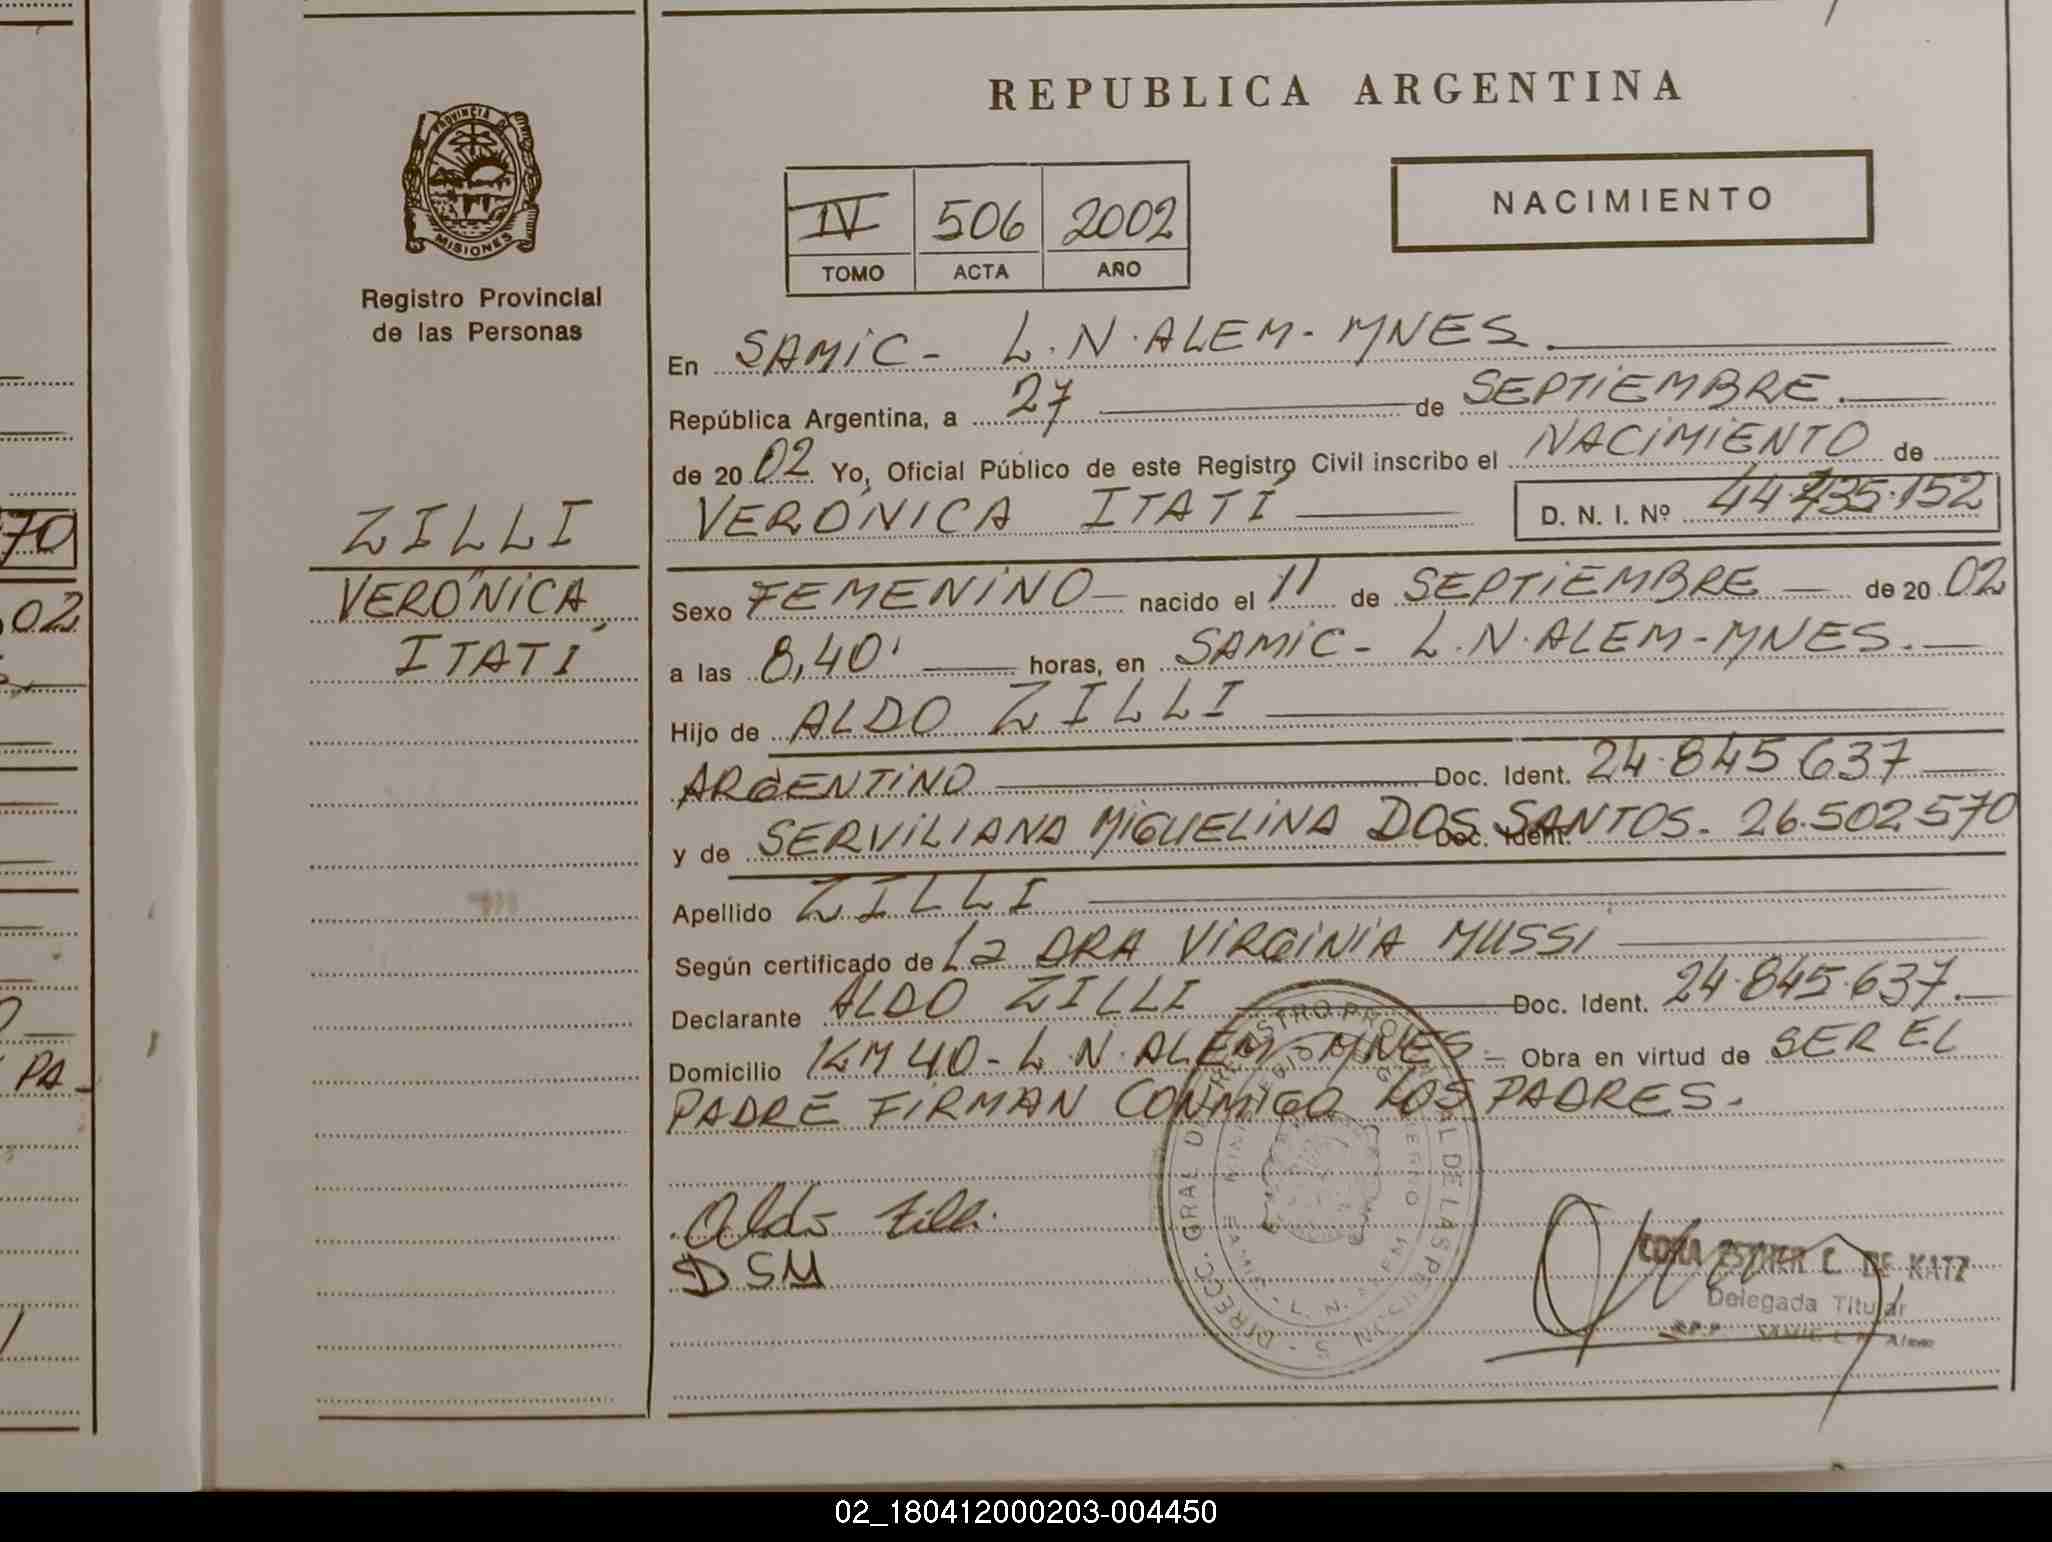 REPUBLICA ARGENTINA
PROVINCIA DE MISIONES
Registro Provincial
de las Personas
IV 506 2002
TOMO ACTA AÑO
NACIMIENTO
En SAMIC - L.N.ALEM - MNES.
República Argentina, a 27 de SEPTIEMBRE.
de 20 02 Yo, Oficial Público de este Registro Civil inscribo el NACIMIENTO de
VERÓNICA ITATÍ D. N. I. Nº 44.735.152
ZILLI
VERÓNICA
ITATÍ
Sexo FEMENINO nacido el 11 de SEPTIEMBRE de 20 02
a las 8,40' horas, en SAMIC - L.N.ALEM - MNES.
Hijo de ALDO ZILLI
ARGENTINO Doc. Ident. 24.845.637
y de SERVILIANA MIGUELINA DOS SANTOS. Doc. Ident. 26.502.570
Apellido ZILLI
Según certificado de La DRA VIRGINIA MUSSI
Declarante ALDO ZILLI Doc. Ident. 24.845.637.
Domicilio KM 40 - L.N.ALEM - MNES - Obra en virtud de SER EL
PADRE FIRMAN CONMIGO LOS PADRES.
Aldo Zilli.
D S M
CORA ESTHER C. DE KATZ
Delegada Titular
R.P.P. SAMIC L.N. Alem
70
02
PA-
02_180412000203-004450